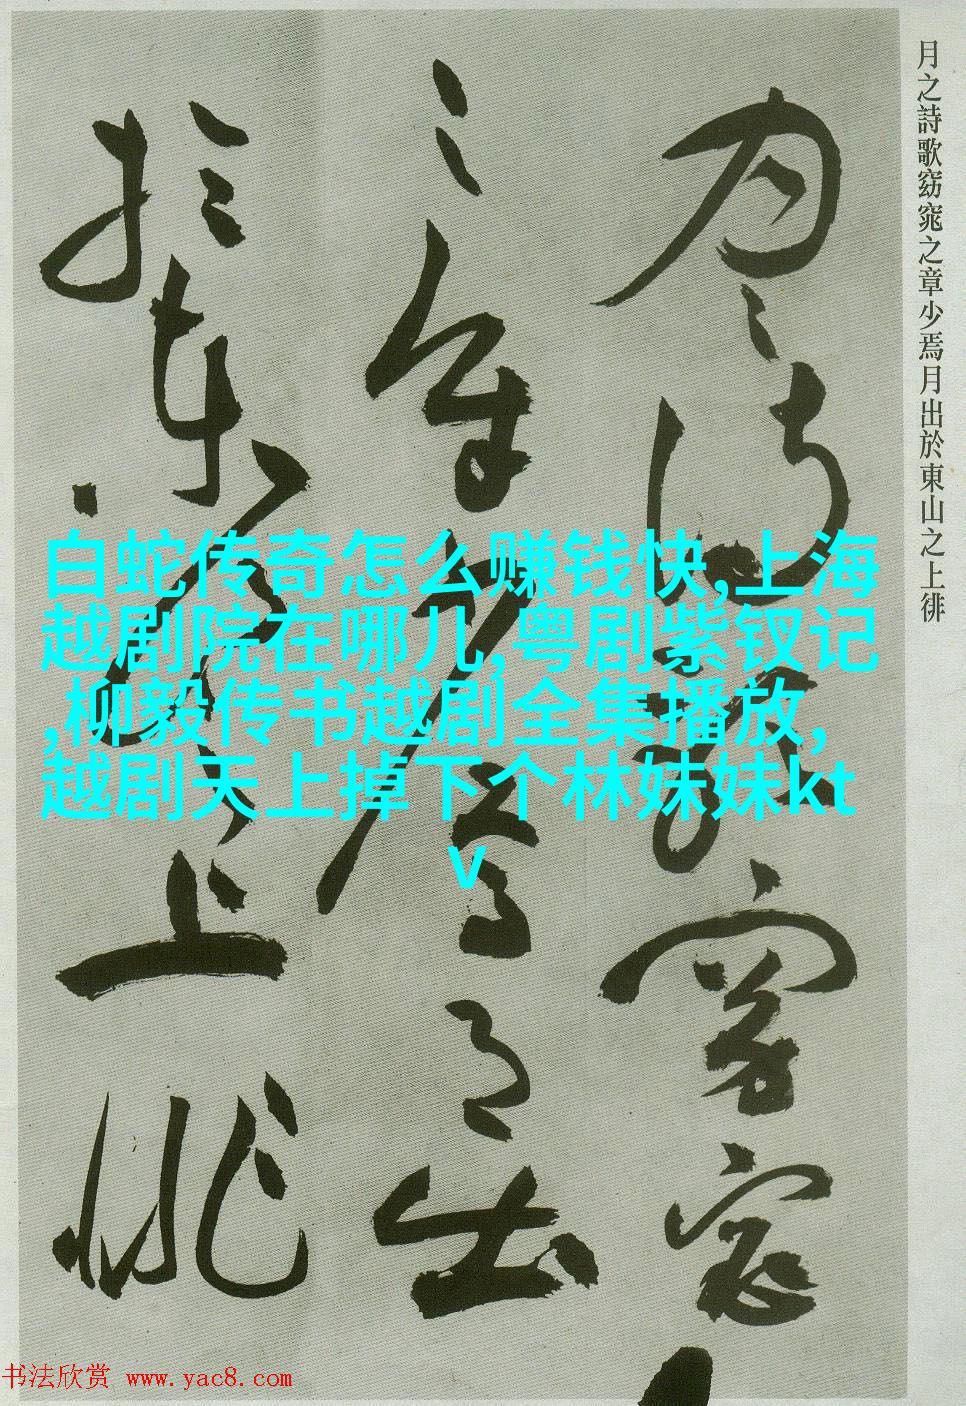 月之詩歌窈窕之章少焉月出於東山之上徘
月之詩歌窈窕
之章少焉月出
於東山之上徘
白蛇传奇怎么赚钱快,上海
越剧院在哪儿,粤剧紫钗记
,柳毅传书越剧全集播放,
越剧天上掉下个林妹妹kt
v
书法欣赏 www.yac8.com